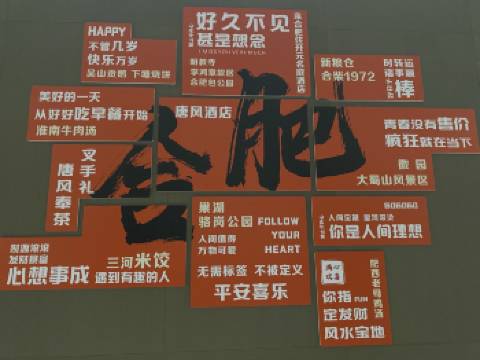 HAPPY
不管几岁
快乐万岁
吴山贡鹅 下塘烧饼
好久不见
甚是想念
I MISS YOU VERY MUCH
在合肥住开元名庭酒店
新粮仓
合柴1972
时转运
诸事顺
棒
美好的一天
从好好吃早餐开始
淮南牛肉汤
唐风酒店
合肥
青春没有售价
疯狂就在当下
徽园
大蜀山风景区
叉手礼
唐风奉茶
巢湖
骆岗公园
人间值得
万物可爱
FOLLOW
YOUR
HEART
无需标签 不被定义
平安喜乐
你是人间理想
财源滚滚
发财暴富
心想事成
三河米饺
遇到有趣的人
满心欢喜
你指FUN
定发财
风水宝地
肥西老母鸡汤